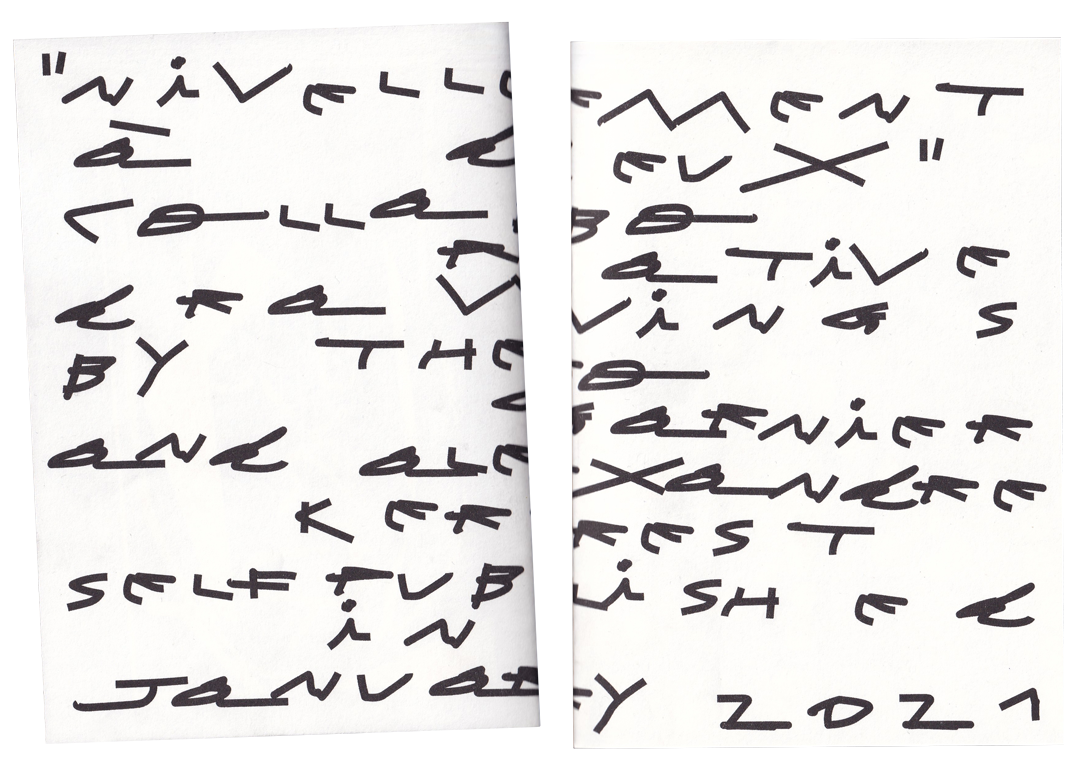 "NiVELLEMENT
À dEUX"
COLLABO
RATiVE
dRAWiNGS
BY THEO
GARNiER
ANd ALEXANdRE
KERREST
SELF PUBLiSHEd
iN
JANUARY 2021